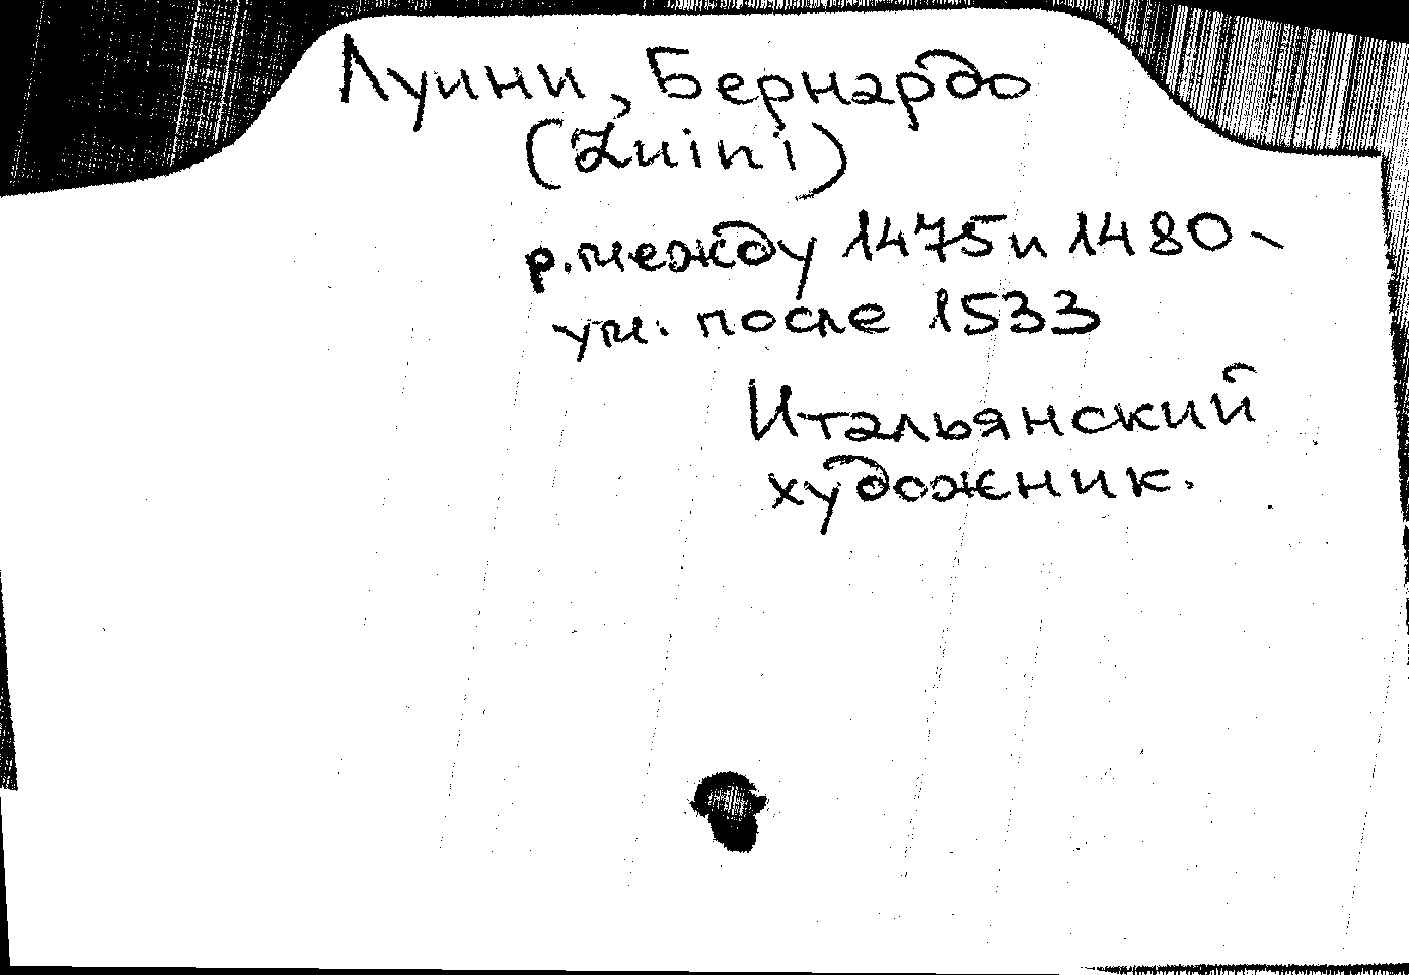 Луини, Бернардо
(Luini)
р. между 1475 и 1480 -
ум. после 1533
Итальянский
художник.